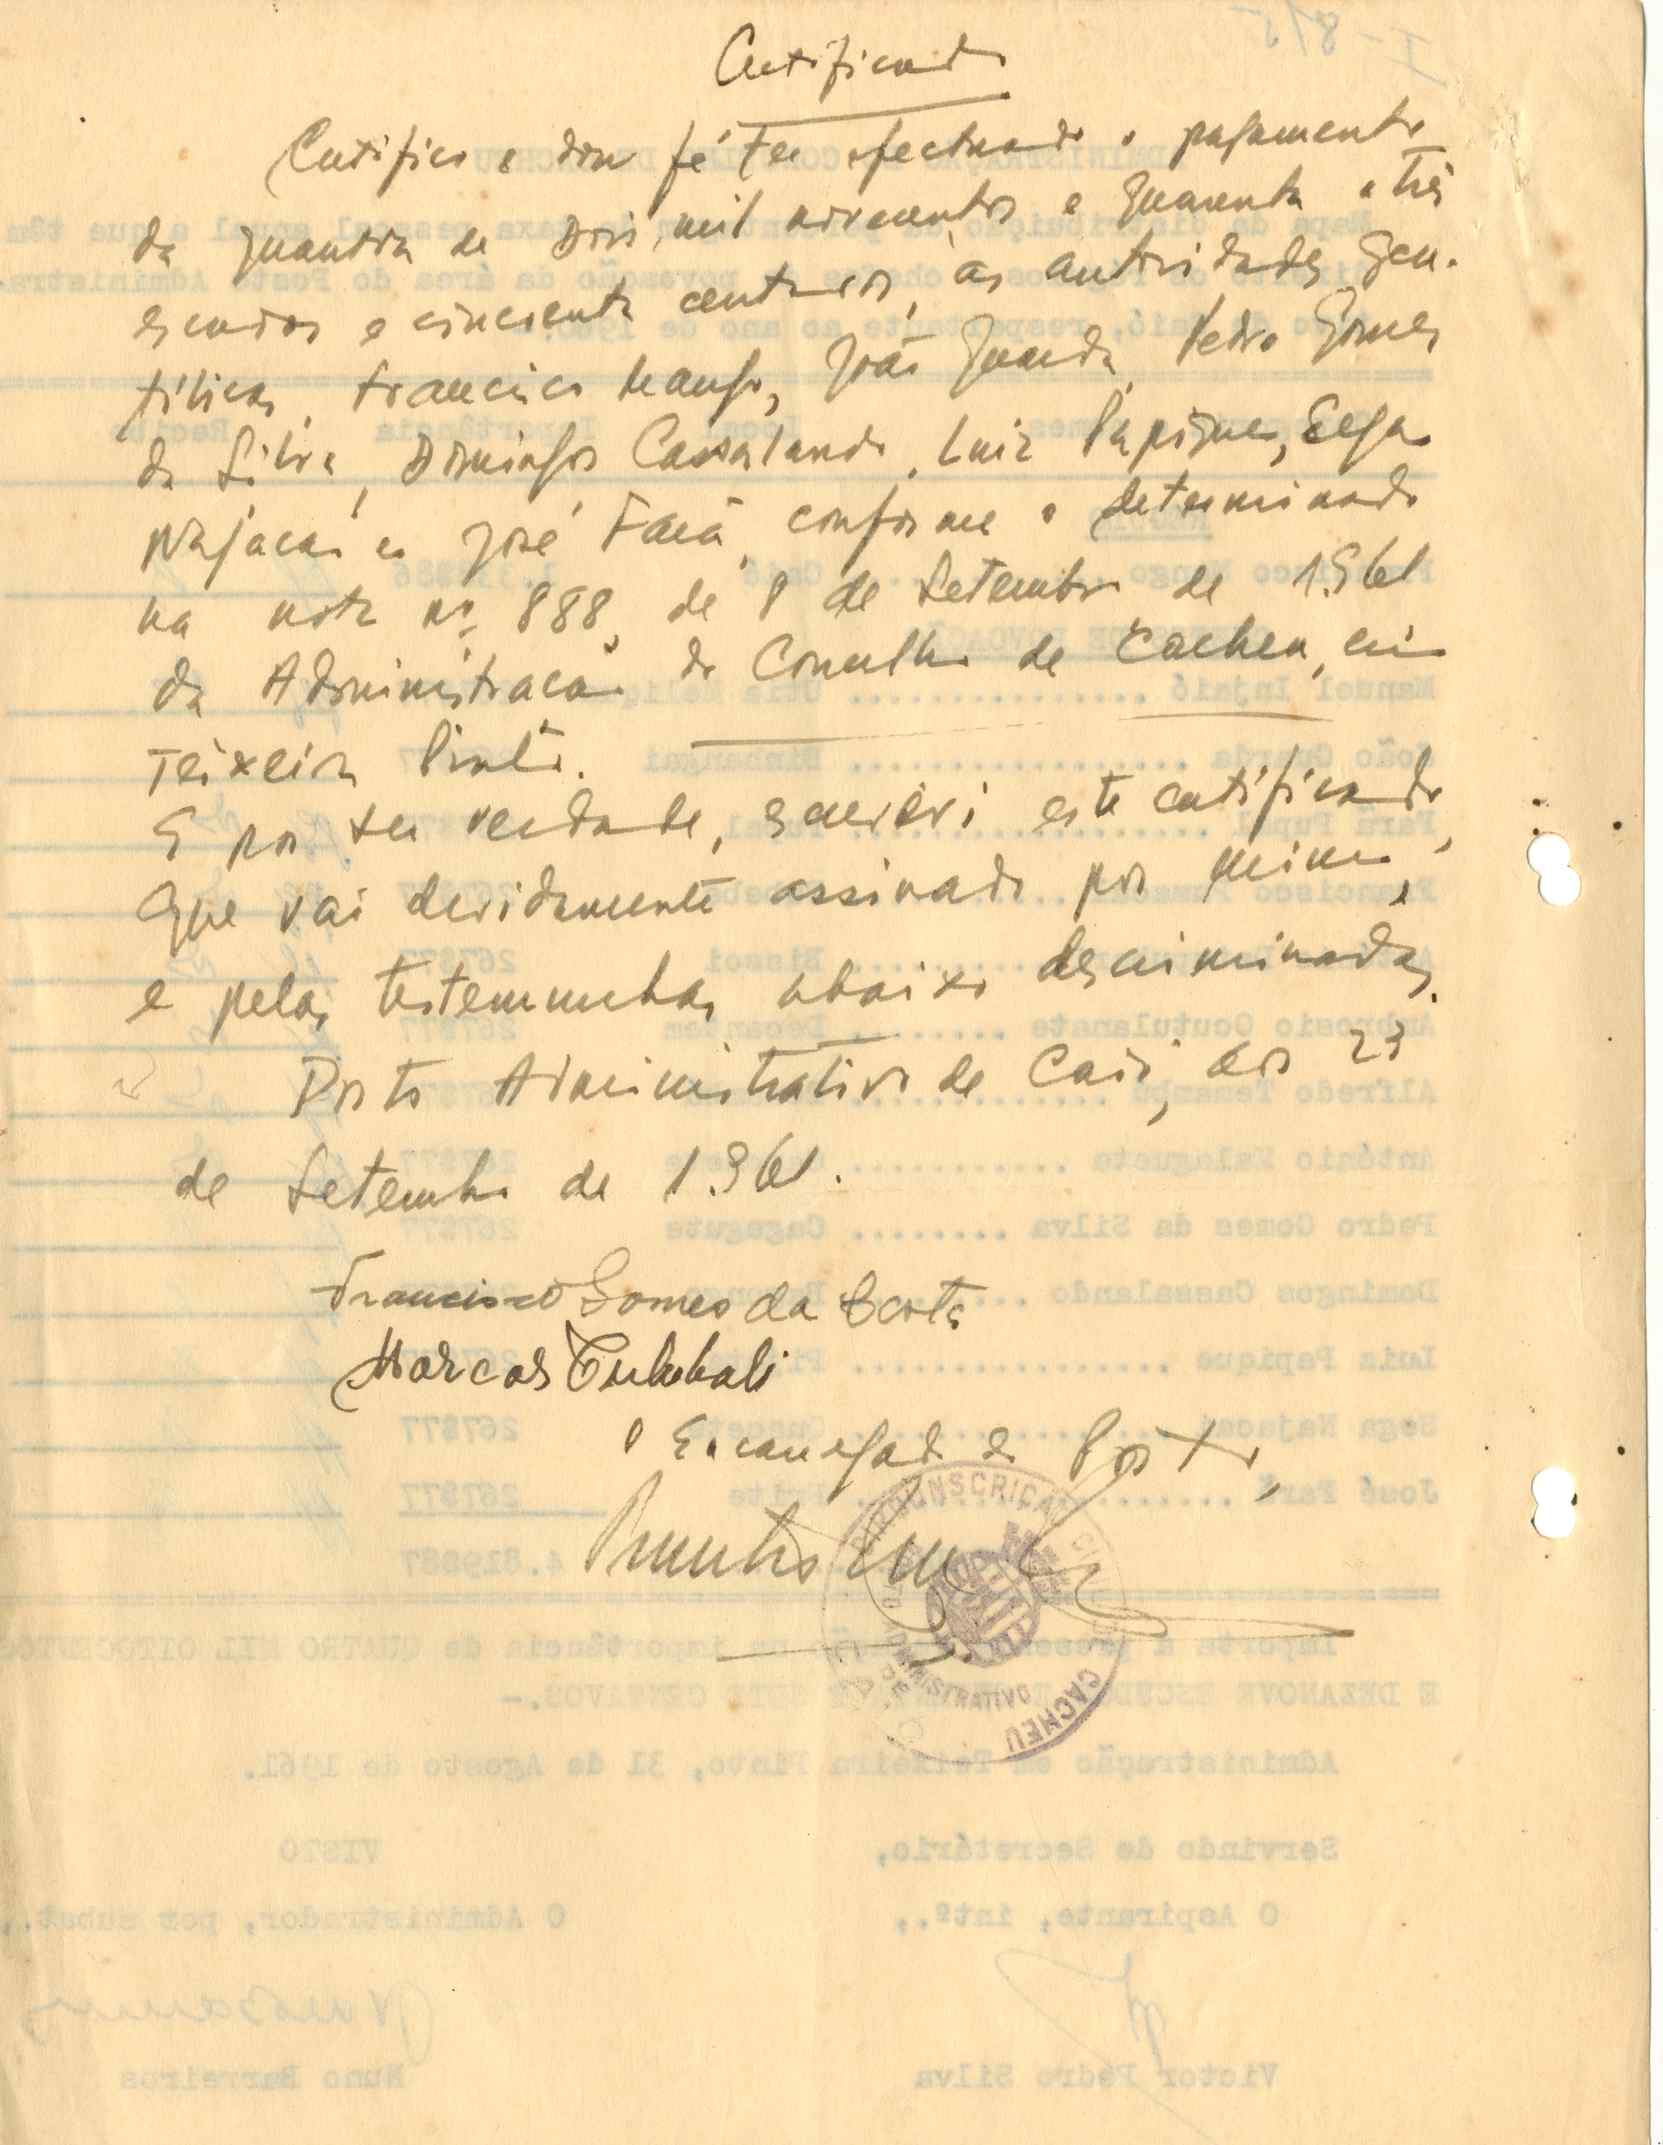 Certificado
Certifico e dou fé ter efectuado o pagamento
da quantia de Dois mil novecentos e quarenta e três
escudos e cincoenta centavos, às autoridades gen-
tílicas, Francisco Mango, João Guarda, Pedro Gomes
da Silva, Domingos Cassalando, Luiz Papique, Sega
Najacai e José Fará, conforme o determinado
na nota nº 888, de 8 de Setembro de 1.961
da Administração do Concelho de Cacheu, em
Teixeira Pinto.
E por ser verdade, escrevi este certificado,
que vai devidamente assinado por mim,
e pelas testemunhas abaixo descriminadas.
Posto Administrativo de Caió, aos 23
de Setembro de 1.961.
Francisco Gomes da Costa
Marcos
O Encarregado do Posto,
CIRCUNSCRIÇÃO CIVIL
CACHEU
POSTO ADMINISTRATIVO
DE CAIÓ